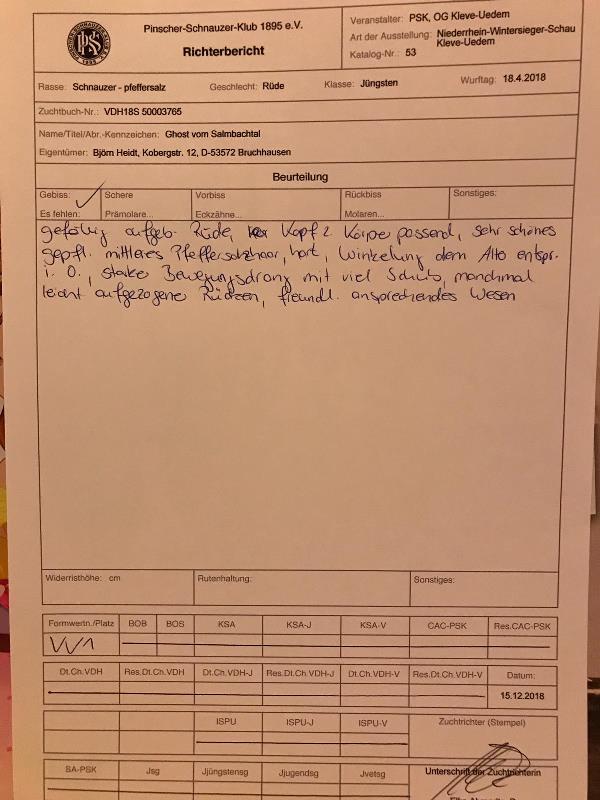 Pinscher-Schnauzer-Klub 1895 e.V.
Richterbericht
Veranstalter: PSK, OG Kleve-Uedem
Art der Ausstellung: Niederrhein-Wintersieger-Schau
Kleve-Uedem
Katalog-Nr.: 53
Rasse: Schnauzer - pfeffersalz Geschlecht: Rüde Klasse: Jüngsten Wurftag: 18.4.2018
Zuchtbuch-Nr.: VDH18S 50003765
Name/Titel/Abr.-Kennzeichen: Ghost vom Salmbachtal
Eigentümer: Björn Heidt, Kobergstr. 12, D-53572 Bruchhausen
Beurteilung
Gebiss: Schere Vorbiss Rückbiss Sonstiges:
Es fehlen: Prämolare... Eckzähne... Molaren...
gefällig aufgeb. Rüde, Kopf z Körper passend, sehr schönes
gepfl. mittleres Pfeffersalzhaar, hart, Winkelung dem Alter entspr.
i. O., starker Bewegungsdrang mit viel Schub, manchmal
leicht aufgezogener Rücken, freundl. ansprechendes Wesen
Widerristhöhe: cm Rutenhaltung: Sonstiges:
Formwertn./Platz BOB BOS KSA KSA-J KSA-V CAC-PSK Res.CAC-PSK
VV1
Dt.Ch.VDH Res.Dt.Ch.VDH Dt.Ch.VDH-J Res.Dt.Ch.VDH-J Dt.Ch.VDH-V Res.Dt.Ch.VDH-V Datum:
15.12.2018
ISPU ISPU-J ISPU-V Zuchtrichter (Stempel)
SA-PSK Jsg Jjüngstensg Jjugendsg Jvetsg Unterschrift der Zuchtrichterin